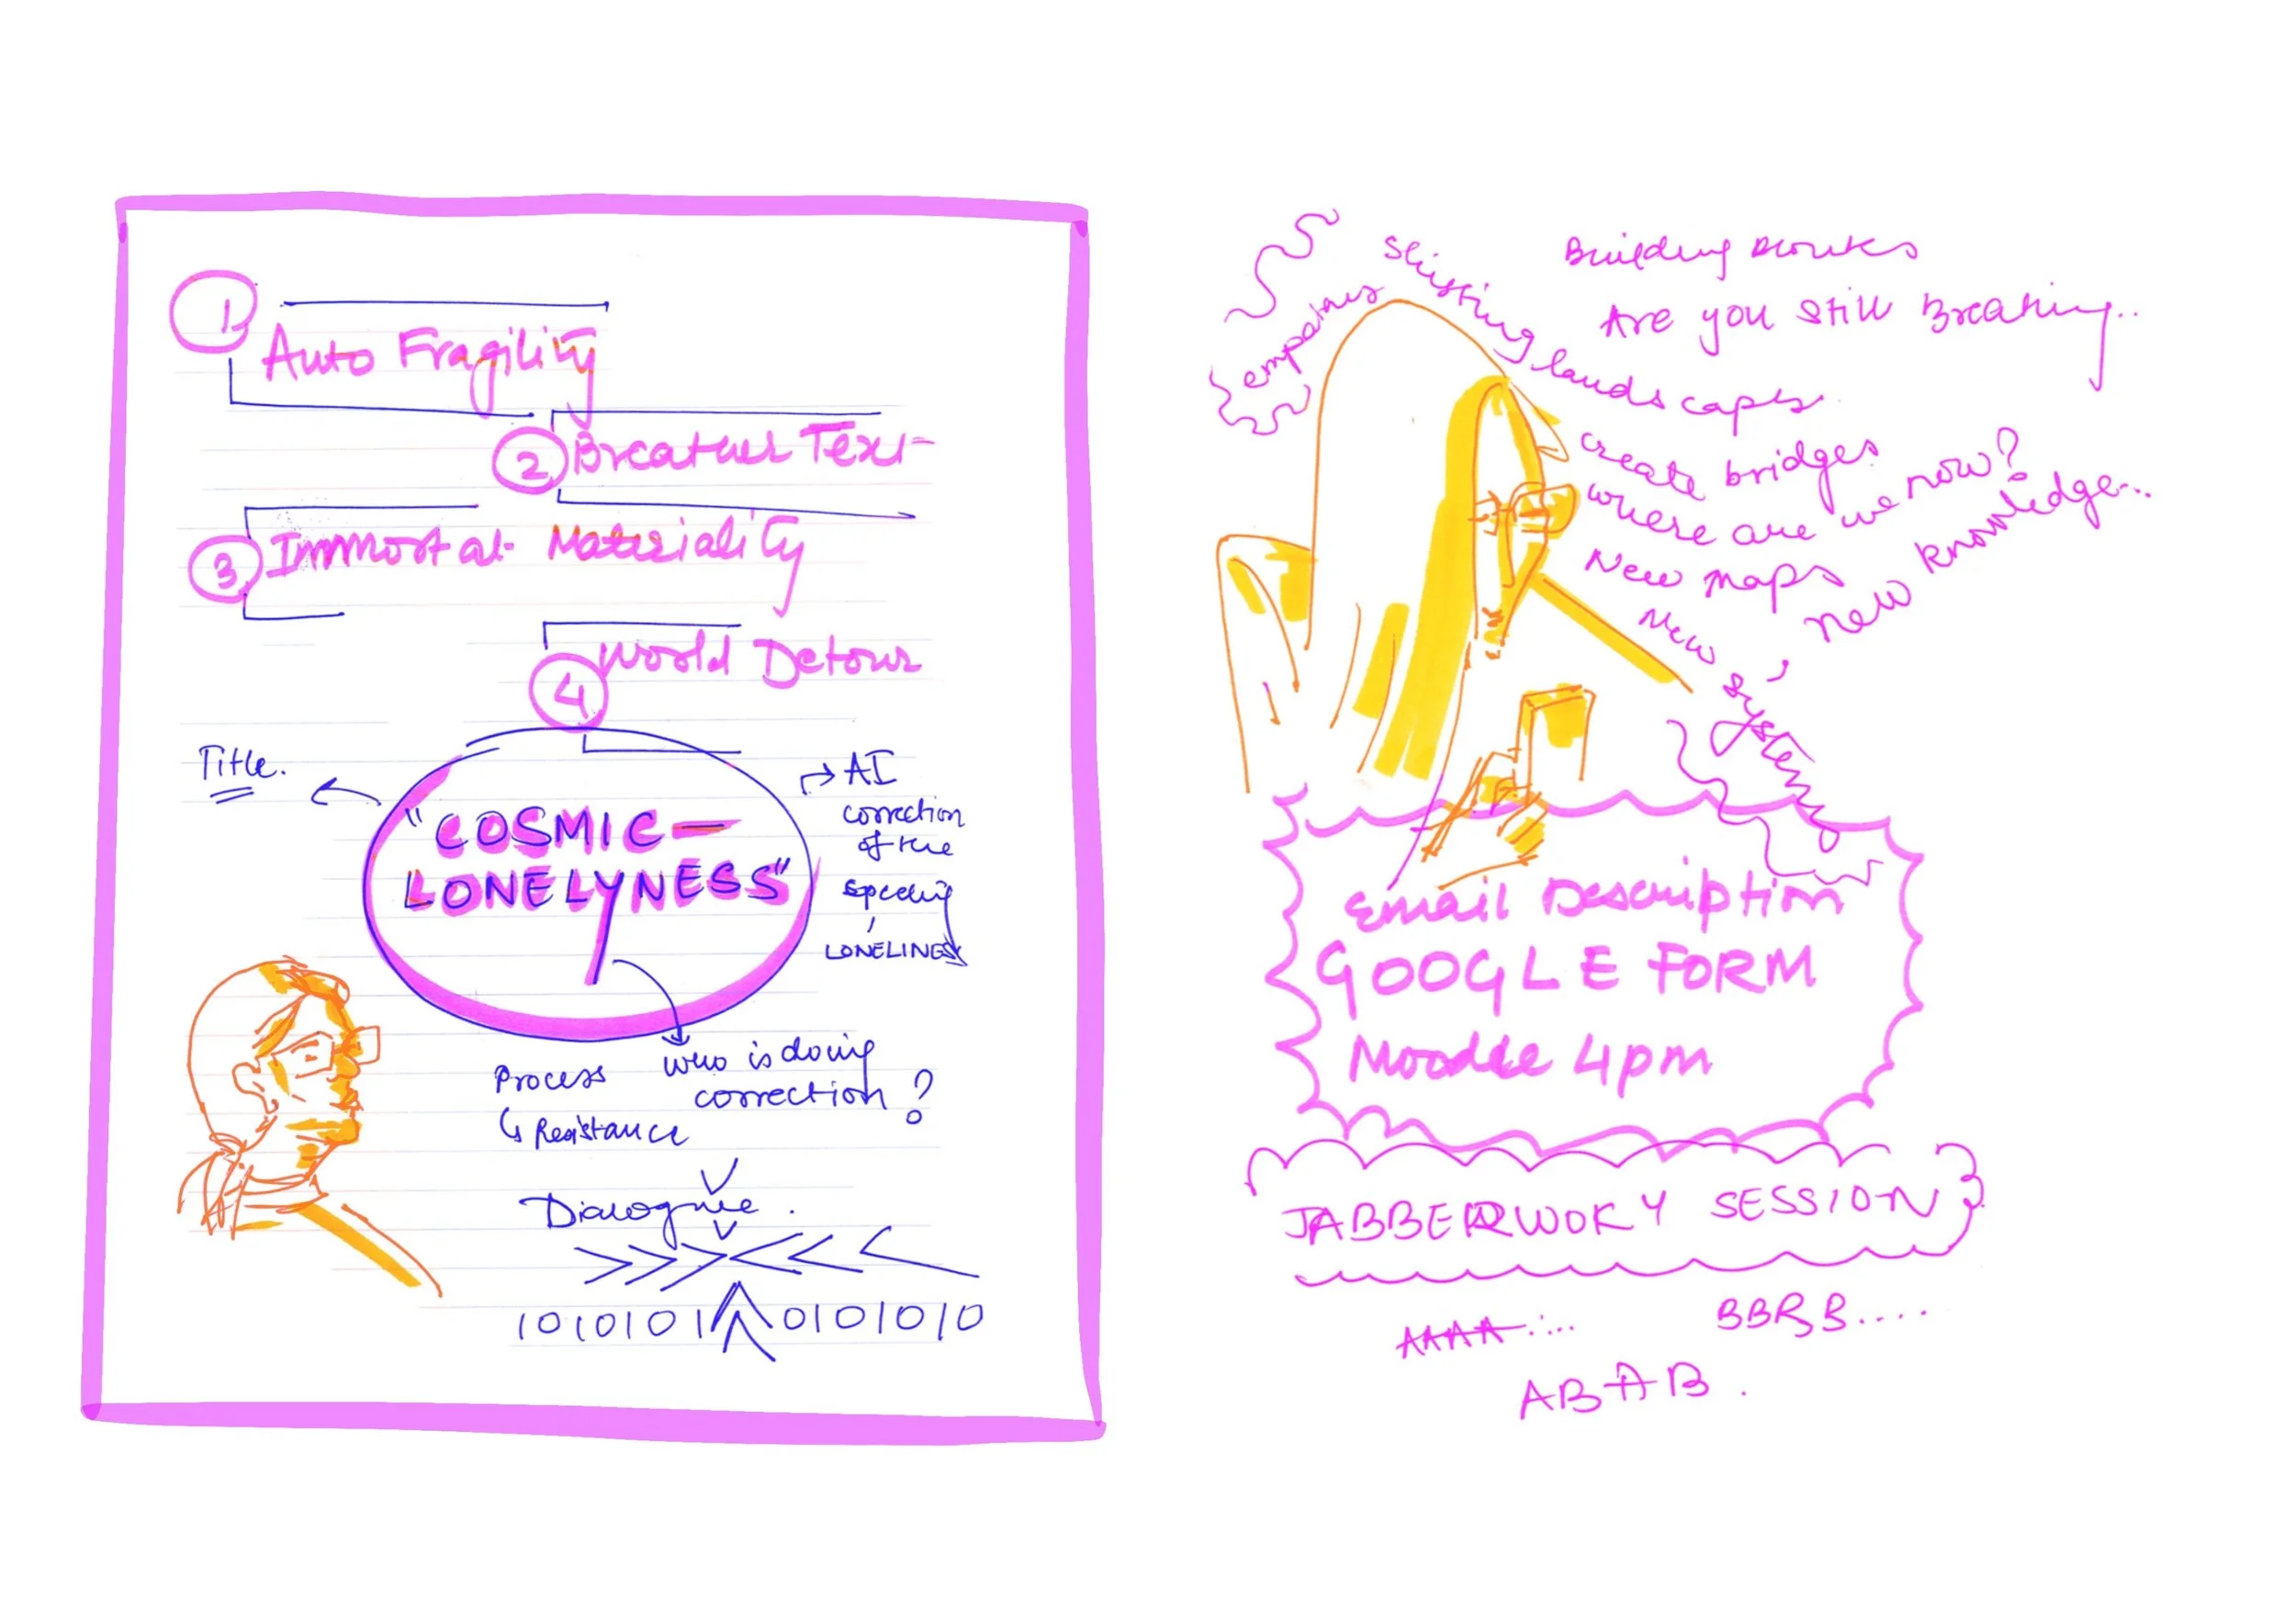 1
Auto Fragility
2 Breather Text
3 Immortal Materiality
World Detour
4
Title.
"COSMIC-
LONELYNESS"
AI
correction
of the
specling
LONELINESS
Process
Resistance
who is doing
correction ?
Dialogue .
1010101 0101010
emperious
shifting landscapes
Building blocks
Are you still Breathing..
create bridges
where are we now?
New maps
New systems
new knowledge...
Email Description
GOOGLE FORM
Moodle 4pm
JABBERWOKY SESSION
AAAA....
BBBB....
ABAB.